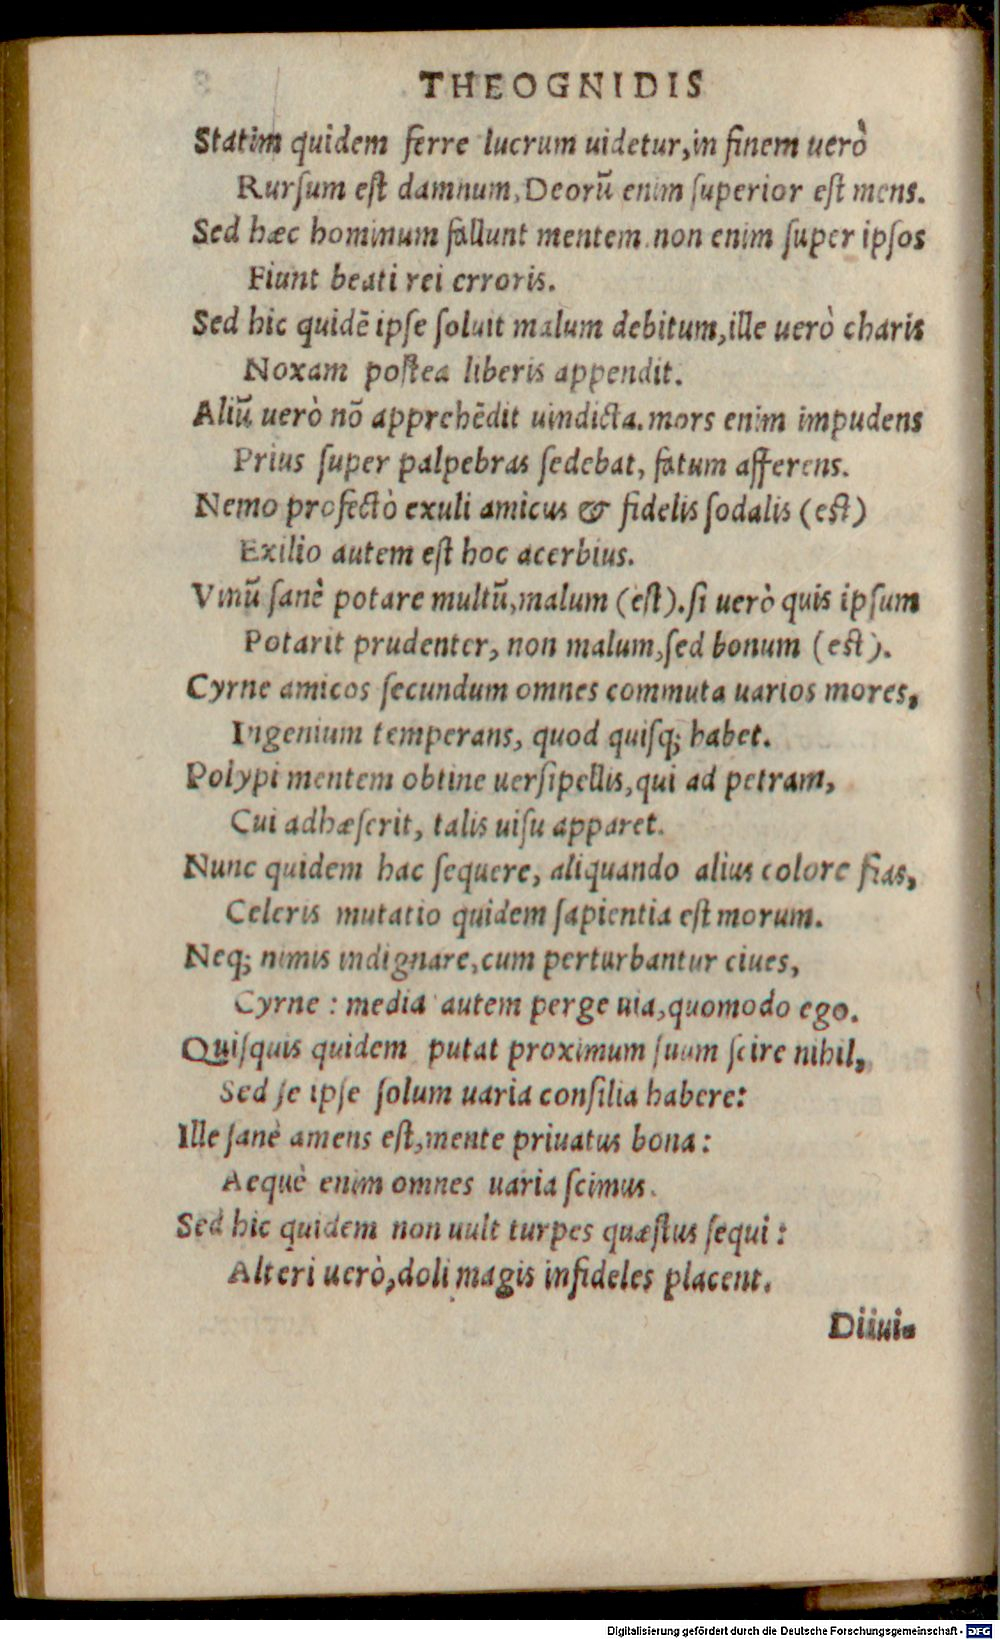 THEOGNIDIS
Statim quidem ferre lucrum uidetur, in finem uerò
Rursum est damnum, Deorū enim superior est mens.
Sed hæc hominum fallunt mentem. non enim super ipsos
Fiunt beati rei erroris.
Sed hic quidē ipse soluit malum debitum, ille uerò charis
Noxam postea liberis appendit.
Aliū uerò nō apprehēdit uindicta. mors enim impudens
Prius super palpebras sedebat, fatum afferens.
Nemo profectò exuli amicus & fidelis sodalis (est)
Exilio autem est hoc acerbius.
Vinū sanè potare multū, malum (est). si uerò quis ipsum
Potarit prudenter, non malum, sed bonum (est).
Cyrne amicos secundum omnes commuta uarios mores,
Ingenium temperans, quod quisq; habet.
Polypi mentem obtine uersipellis, qui ad petram,
Cui adhæserit, talis uisu apparet.
Nunc quidem hac sequere, aliquando alius colore fias,
Celeris mutatio quidem sapientia est morum.
Neq; nimis indignare, cum perturbantur ciues,
Cyrne: media autem perge uia, quomodo ego.
Quisquis quidem putat proximum suum scire nihil,
Sed se ipse solum uaria consilia habere:
Ille sanè amens est, mente priuatus bona:
Aequè enim omnes uaria scimus.
Sed hic quidem non uult turpes quæstus sequi:
Alteri uerò, doli magis infideles placent.
Diiui-
Digitalisierung gefördert durch die Deutsche Forschungsgemeinschaft - DFG